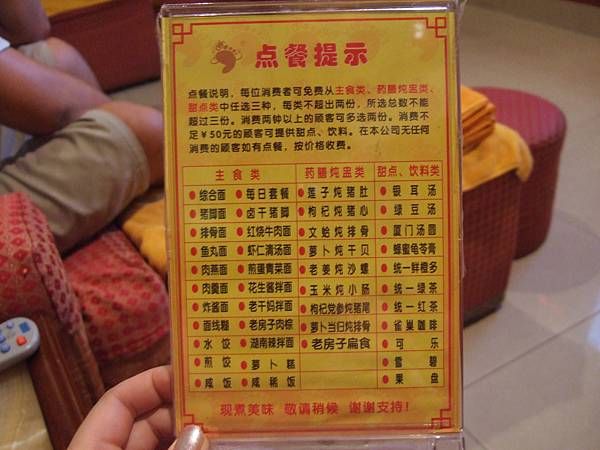 点餐提示
点餐说明，每位消费者可免费从主食类、药膳炖盅类、
甜点类中任选三种，每类不超出两份，所选总数不能
超过三份。消费两钟以上的顾客可多选两份。消费不
足￥50元的顾客可提供甜点、饮料。在本公司无任何
消费的顾客如有点餐，按价格收费。
主食类 药膳炖盅类 甜点、饮料类
综合面 每日套餐 莲子炖猪肚 银耳汤
猪脚面 卤干猪脚 枸杞炖猪心 绿豆汤
排骨面 红烧牛肉面 文蛤炖排骨 厦门汤圆
鱼丸面 虾仁清汤面 萝卜炖干贝 蜂蜜龟苓膏
肉燕面 煎蛋青菜面 老姜炖沙螺 统一鲜橙多
肉羹面 花生酱拌面 玉米炖小肠 统一绿茶
炸酱面 老干妈拌面 枸杞党参炖猪尾 统一红茶
面线糊 老房子肉粽 萝卜当归炖排骨 雀巢咖啡
水饺 湖南辣拌面 老房子扁食 可乐
煎饺 萝卜糕 雪碧
咸饭 咸稀饭 果盘
现煮美味 敬请稍候 谢谢支持！